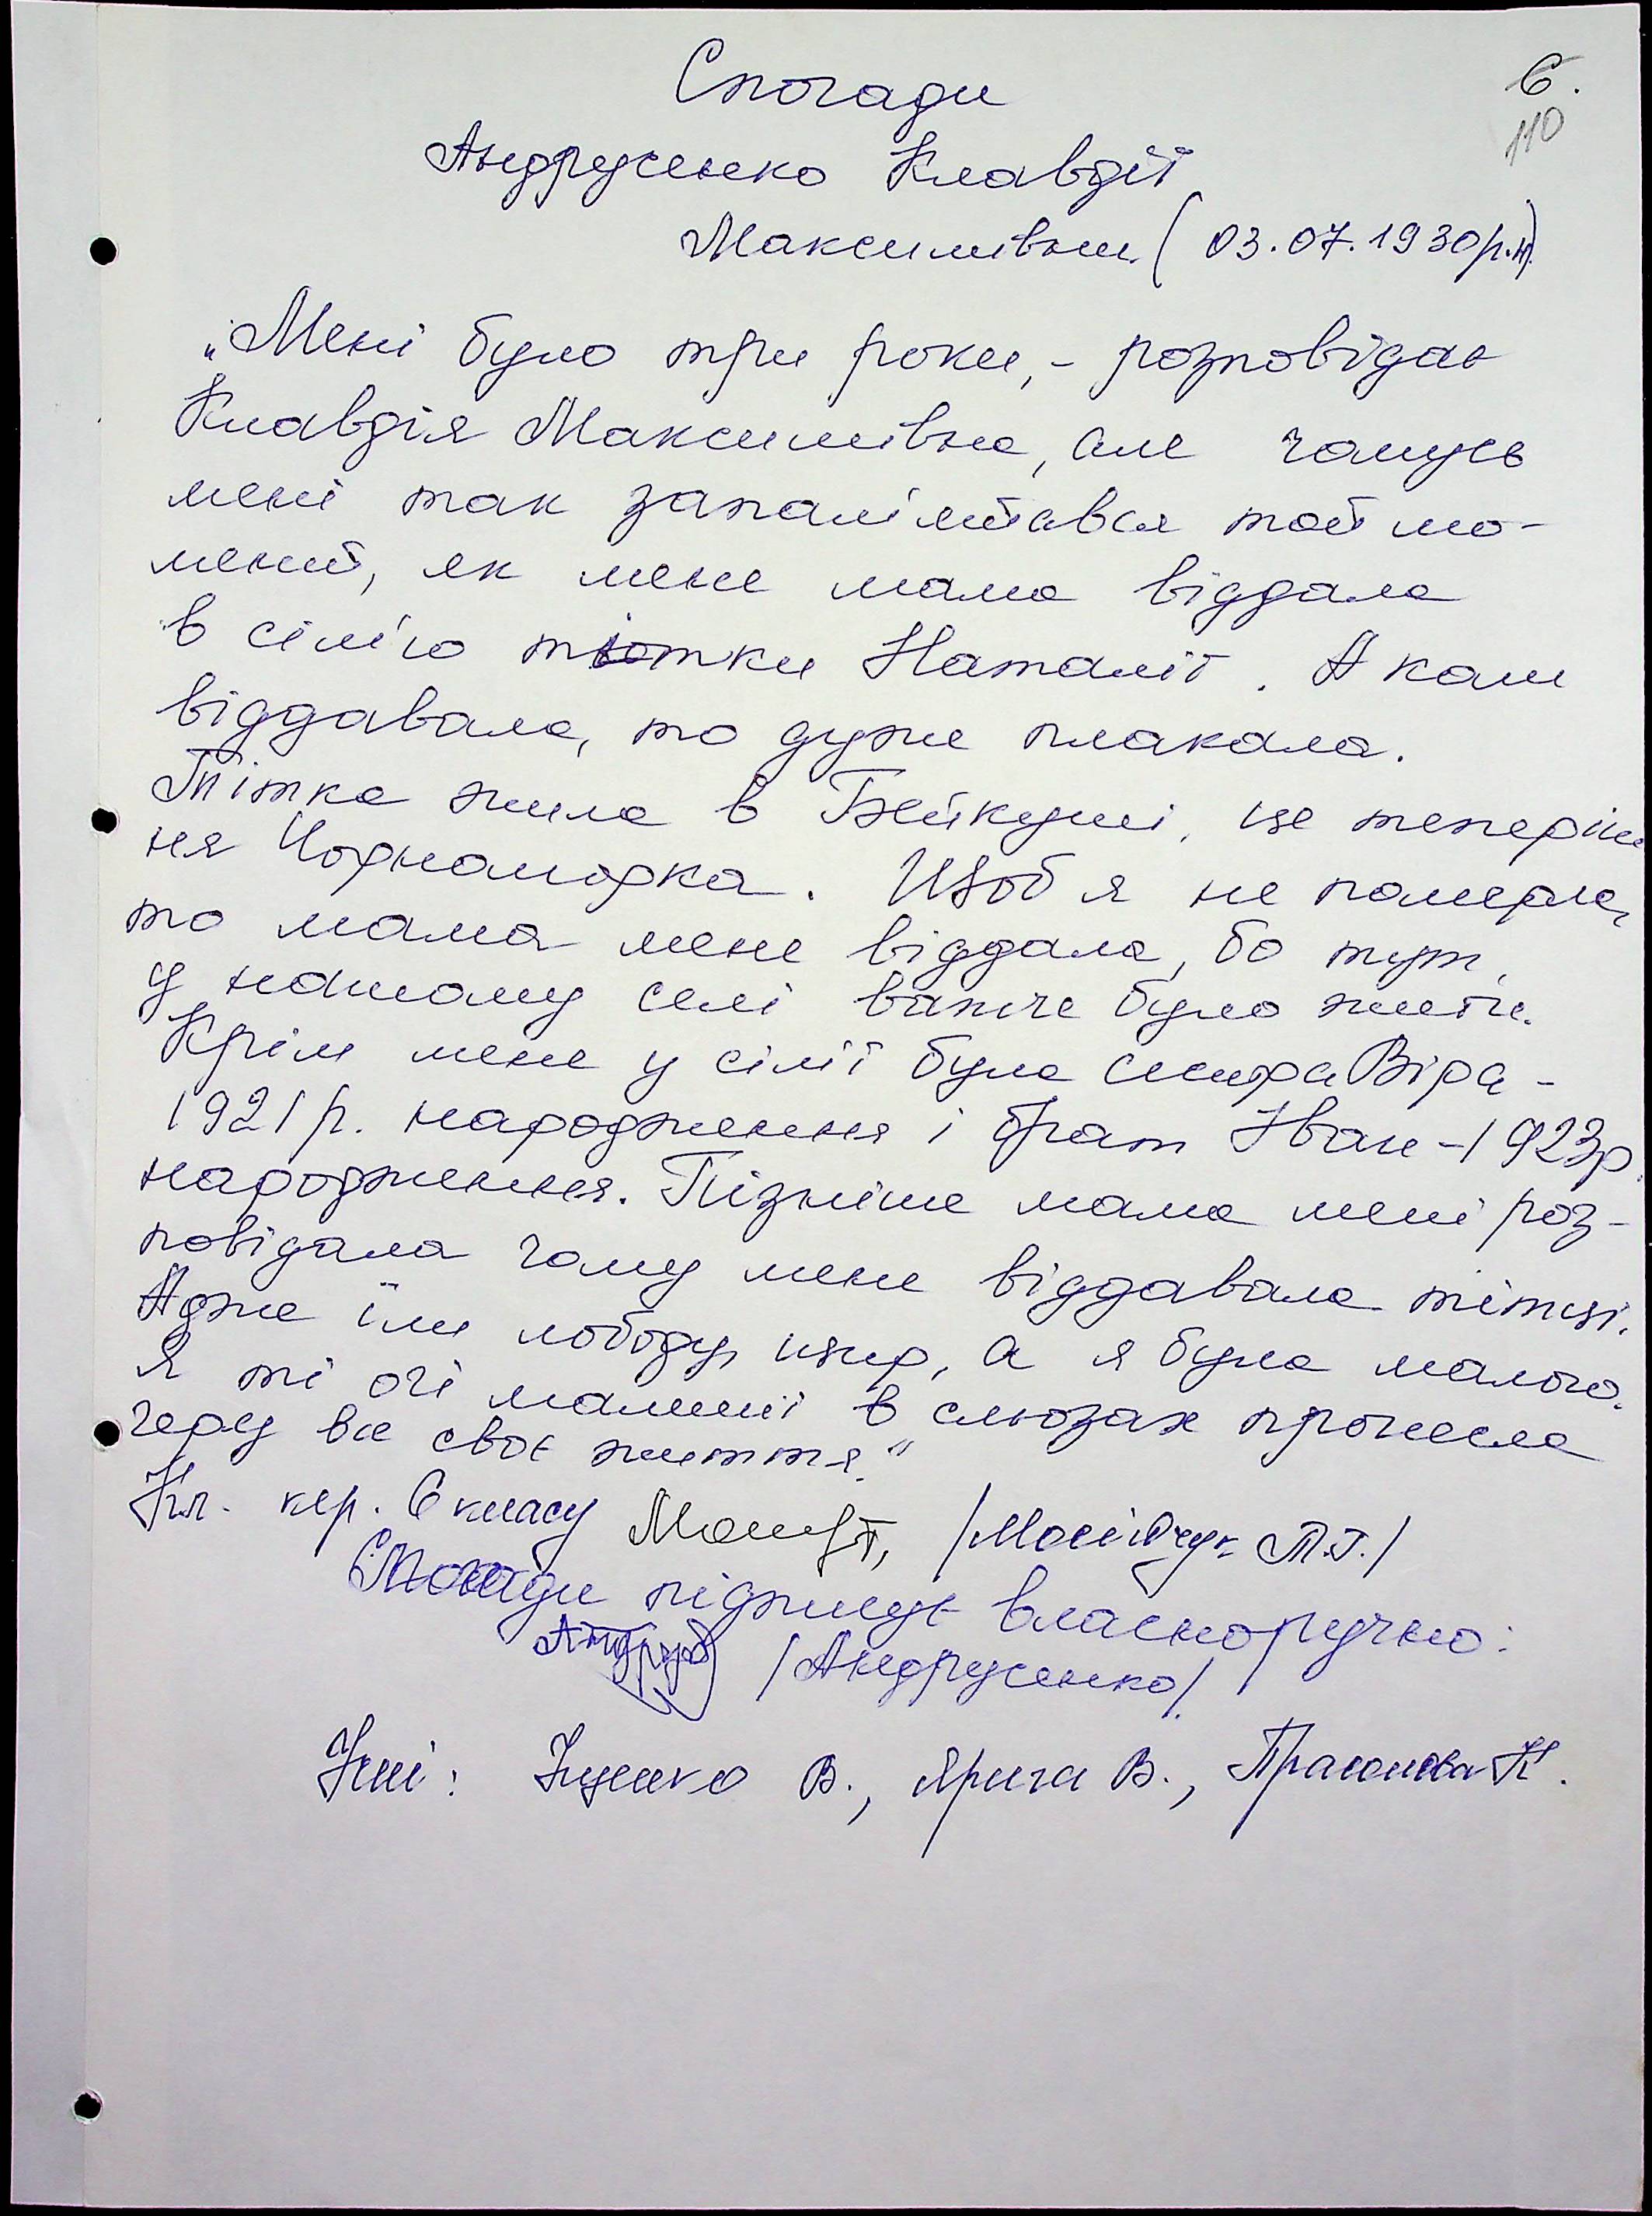 6.
110
Спогади
Андрусенко Клавдії
Максимівни (03.07.1930р.н)
„Мені було три роки, - розповідає
Клавдія Максимівна, але чомусь
мені так запам'ятався той мо-
мент, як мене мама віддала
в сім'ю тітки Наталії. А коли
віддавала, то дуже плакала.
Тітка жила в Бейкуші, це теперіш
ня Чорноморка. Щоб я не померла,
то мама мене віддала, бо тут,
у нашому селі важче було жити.
Крім мене у сім'ї була сестра Віра -
1921 р. народження і брат Іван - 1923р.
народження. Пізніше мама мені роз-
повідала чому мене віддавала тітці.
Адже їли лободу, щир, а я була малою.
Я ті очі мамині в сльозах пронесла
через все своє життя."
Кл. кер. 6 класу /Мосійчук Т.Г./
Спогади підписує власноручно:
/Андрусенко/
Учні: Іщенко В., Ярига В., К.